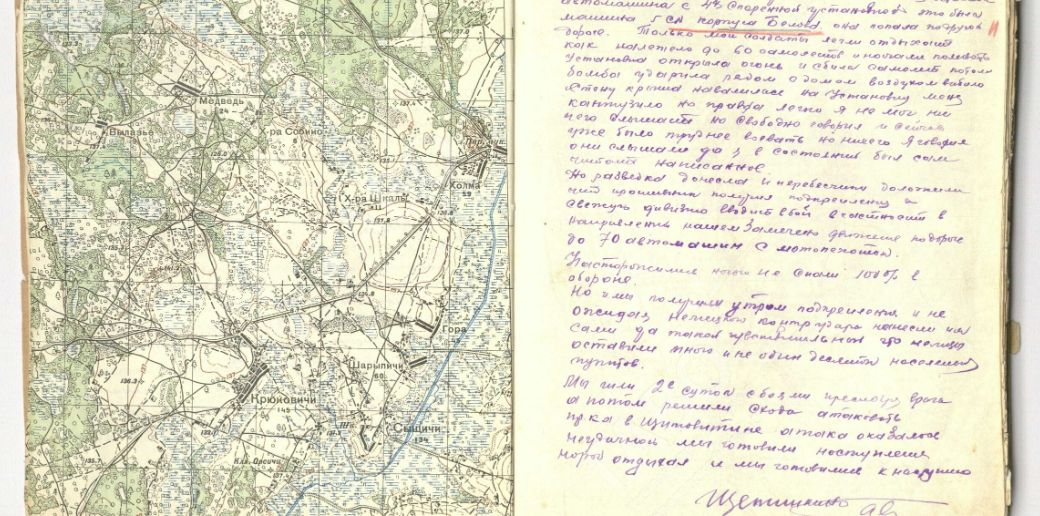 Медведь
24
Вылазье
х-ра Собино
Холма
59
Х-ра Шкалы
Гора
Шарыпичи
60
Крюковичи
145
Сыщичи
134
Кл. Овсичи
137.0
137.4
135.1
136.3
автомашина с 4х спаренной установкой это была
машина 5 СА корпуса Белова она попала под
дороге. Только мои солдаты легли отдыхать
как налетело до 60 самолетов и начали поливать
Установка открыла огонь и сбила самолет потом
бомба ударила рядом с домом воздухом выбило
стену крыша навалилась на Установку меня
контузило но правда легко я не мог ни
чего слышать но свободно говорил и
уже было труднее воевать но ничего Я говорил
они слышали да я в состоянии был сам
читать написанное
Но разведка донесла и перебежчики доложили
что противник получил подкрепления и
свежую дивизию вводит в бой в частности в
направлении нашем Замечено движение по дороге
до 70 автомашин с мотопехотой.
Насторожились ночью не спали 100% в
обороне.
Но и мы получили утром подкрепления и не
ожидая немецкого контрудара нанесли им
сами да такой чувствительный что немцы
оставили много и не один десяток населенных
пунктов.
Мы шли 2е суток с боями преследуя врага
а потом решили снова атаковать
атака оказалась
неудачной мы готовили наступление
народ отдыхал и мы готовились к